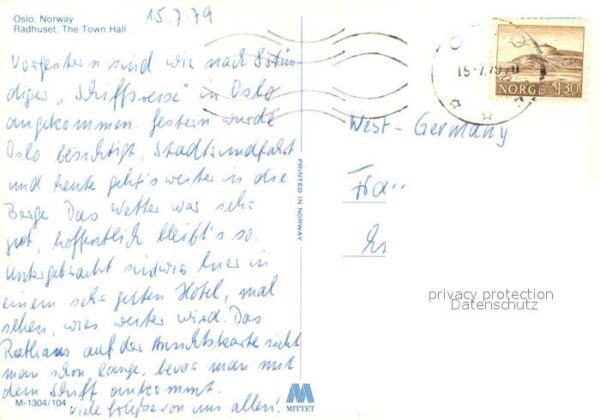 Oslo, Norway
Rådhuset. The Town Hall
15.7.79
Vorgestern sind wir nach 20stün
diger "Schiffsreise" in Oslo
angekommen. Gestern wurde
Oslo besichtigt, Stadtrundfahrt
und heute geht's weiter in die
Berge. Das Wetter war sehr
gut, hoffentlich bleibt's so.
Untergebracht sind wir hier in
einem sehr guten Hotel, mal
sehen, wies weiter wird. Das
Rathaus auf der Ansichtskarte sieht
man schon lange, bevor man mit
dem Schiff ankommt.
Viele Grüße von uns allen!
M-1304/104
PRINTED IN NORWAY
MITTET
NORGE 1.30
15.7.79
West-Germany
Fra..
privacy protection
Datenschutz